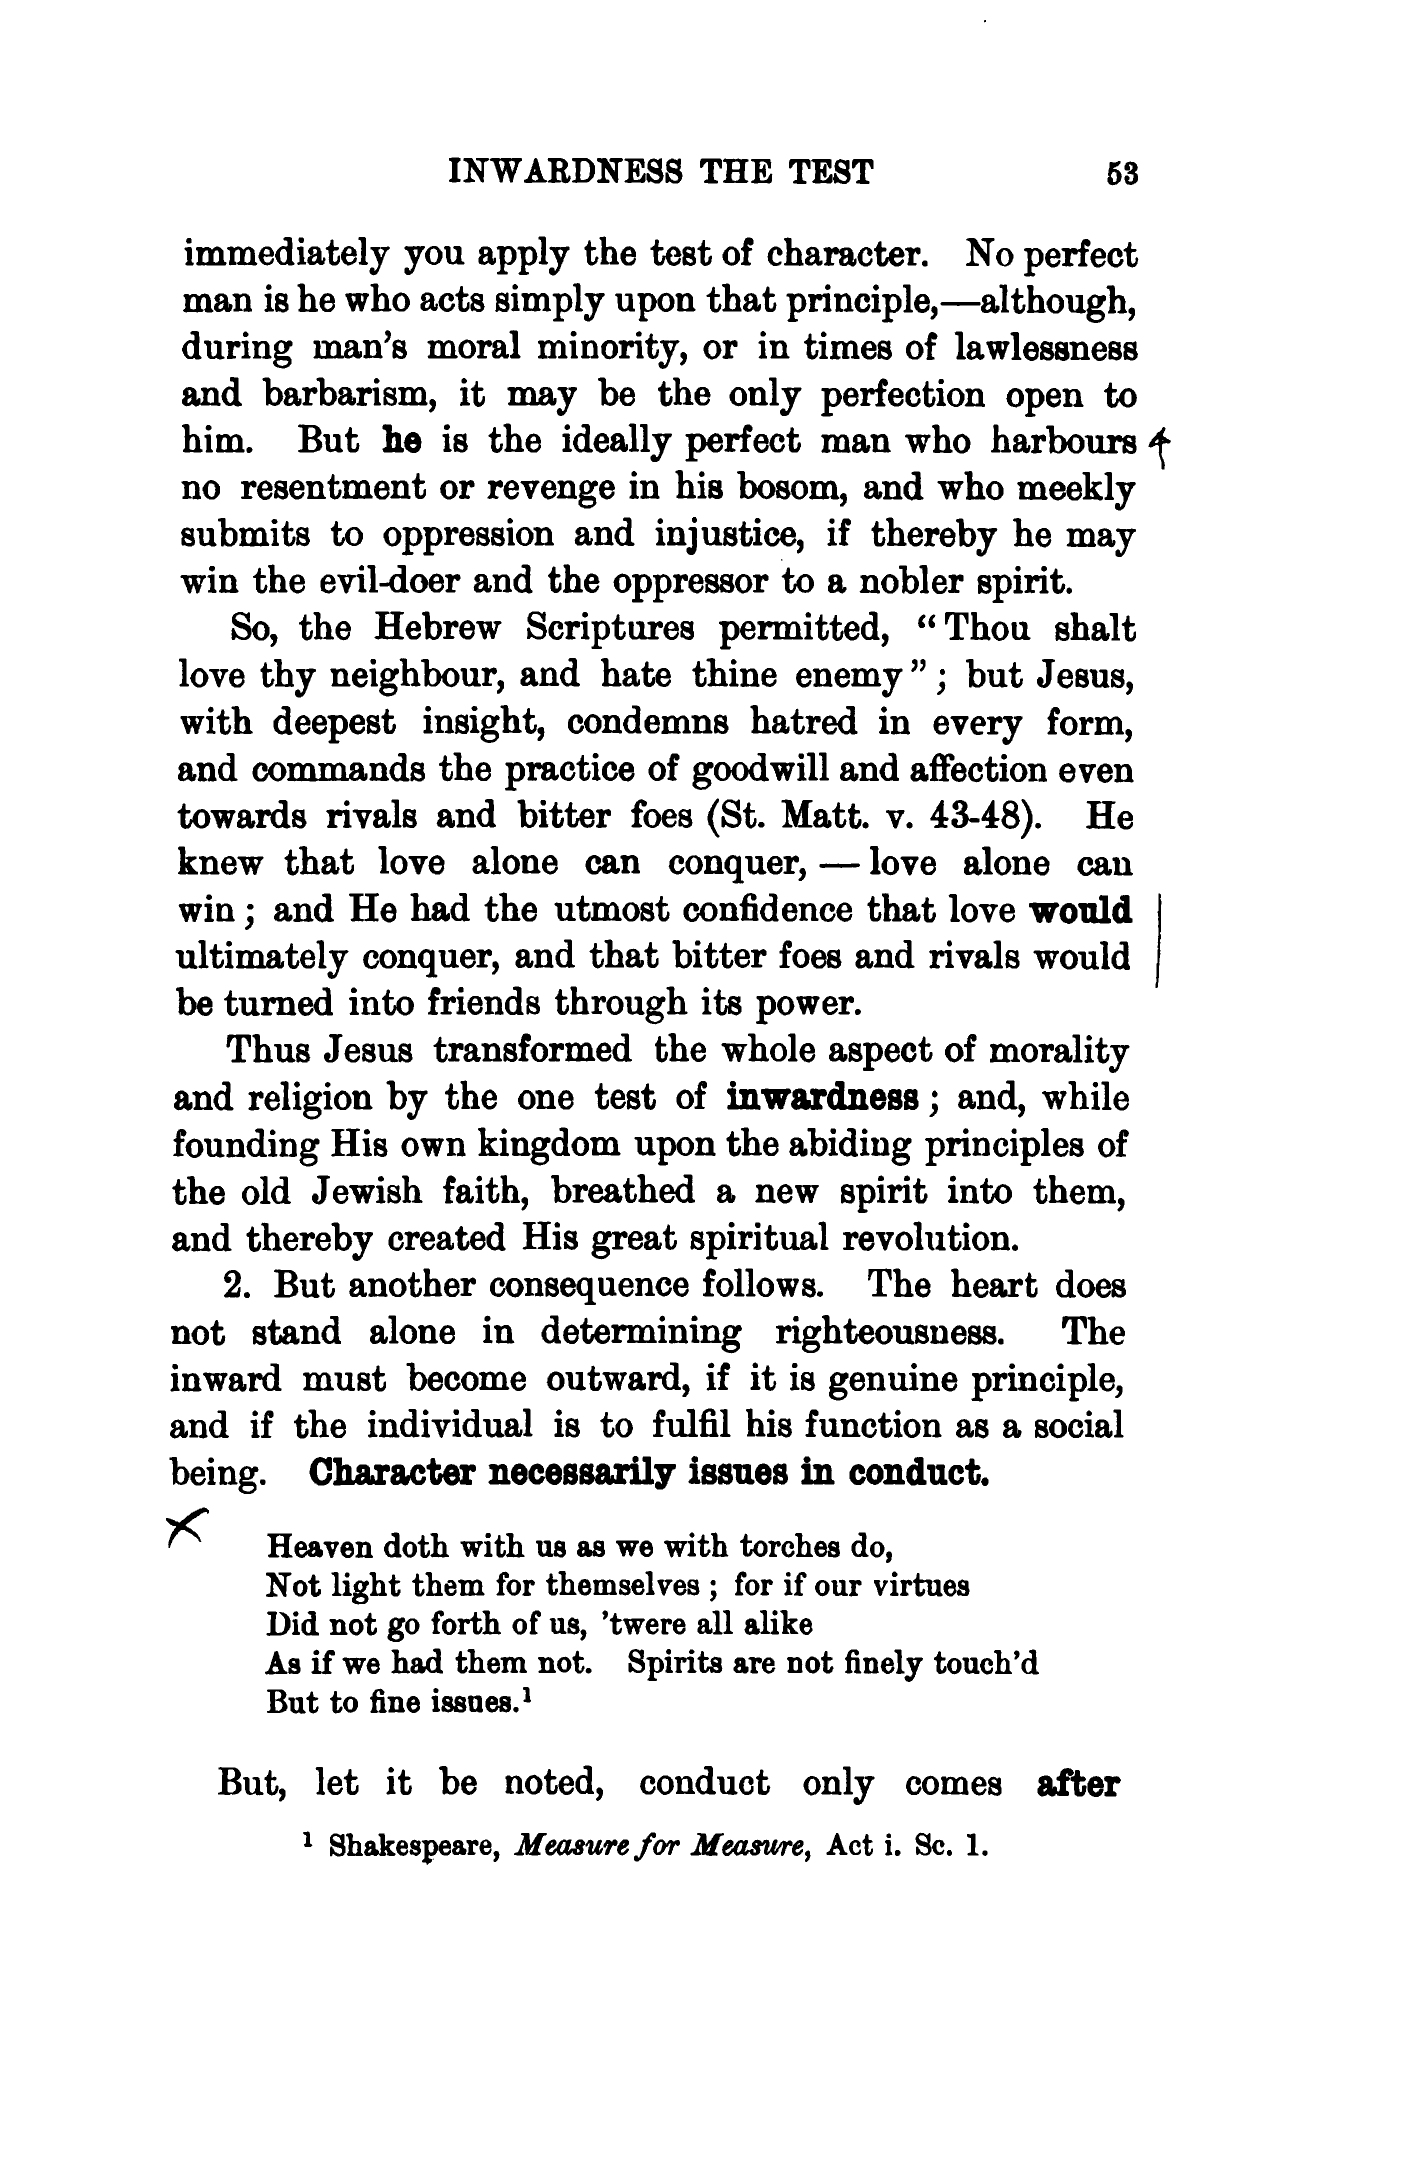 INWARDNESS THE TEST 53
immediately you apply the test of character. No perfect
man is he who acts simply upon that principle,—although,
during man's moral minority, or in times of lawlessness
and barbarism, it may be the only perfection open to
him. But he is the ideally perfect man who harbours
no resentment or revenge in his bosom, and who meekly
submits to oppression and injustice, if thereby he may
win the evil-doer and the oppressor to a nobler spirit.
So, the Hebrew Scriptures permitted, “Thou shalt
love thy neighbour, and hate thine enemy”; but Jesus,
with deepest insight, condemns hatred in every form,
and commands the practice of goodwill and affection even
towards rivals and bitter foes (St. Matt. v. 43-48). He
knew that love alone can conquer,—love alone can
win; and He had the utmost confidence that love would
ultimately conquer, and that bitter foes and rivals would
be turned into friends through its power.
Thus Jesus transformed the whole aspect of morality
and religion by the one test of inwardness; and, while
founding His own kingdom upon the abiding principles of
the old Jewish faith, breathed a new spirit into them,
and thereby created His great spiritual revolution.
2. But another consequence follows. The heart does
not stand alone in determining righteousness. The
inward must become outward, if it is genuine principle,
and if the individual is to fulfil his function as a social
being. Character necessarily issues in conduct.
Heaven doth with us as we with torches do,
Not light them for themselves; for if our virtues
Did not go forth of us, 'twere all alike
As if we had them not. Spirits are not finely touch'd
But to fine issues.¹
But, let it be noted, conduct only comes after
¹ Shakespeare, Measure for Measure, Act i. Sc. 1.